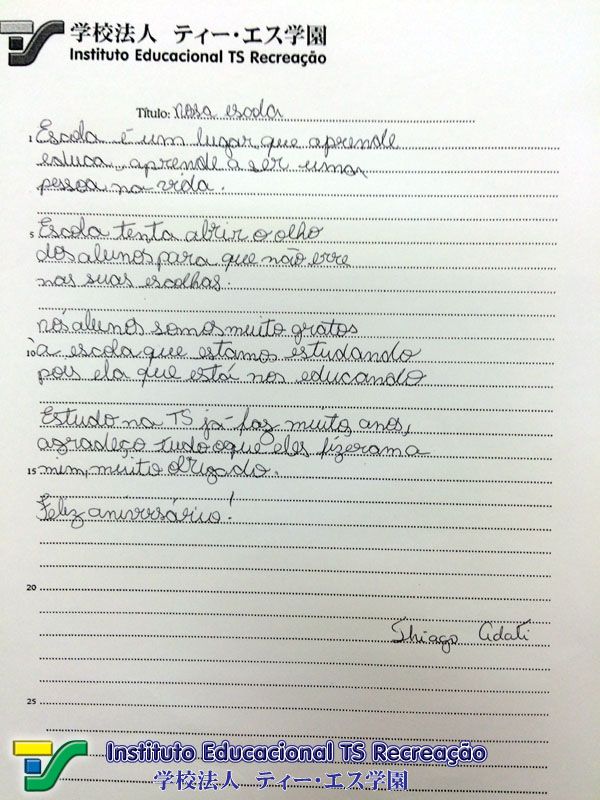 学校法人 ティー・エス学園
Instituto Educacional TS Recreação
Título: nosa escola
1 Escola é um lugar que aprende
estuca, aprende a ser uma
pessoa na vida.
5 Escola tenta abrir o olho
dos alunos para que não erre
nas suas escolhas.
nós alunos somos muito gratos
10 à escola que estamos estudando
pois ela que está nos educando
Estudo na TS já faz muito anos,
agradeço tudo oque eles fizeram a
15 mim, muito obrigado.
Feliz anivrsário!
20
Thiago Adati
25
Instituto Educacional TS Recreação
学校法人 ティー・エス学園